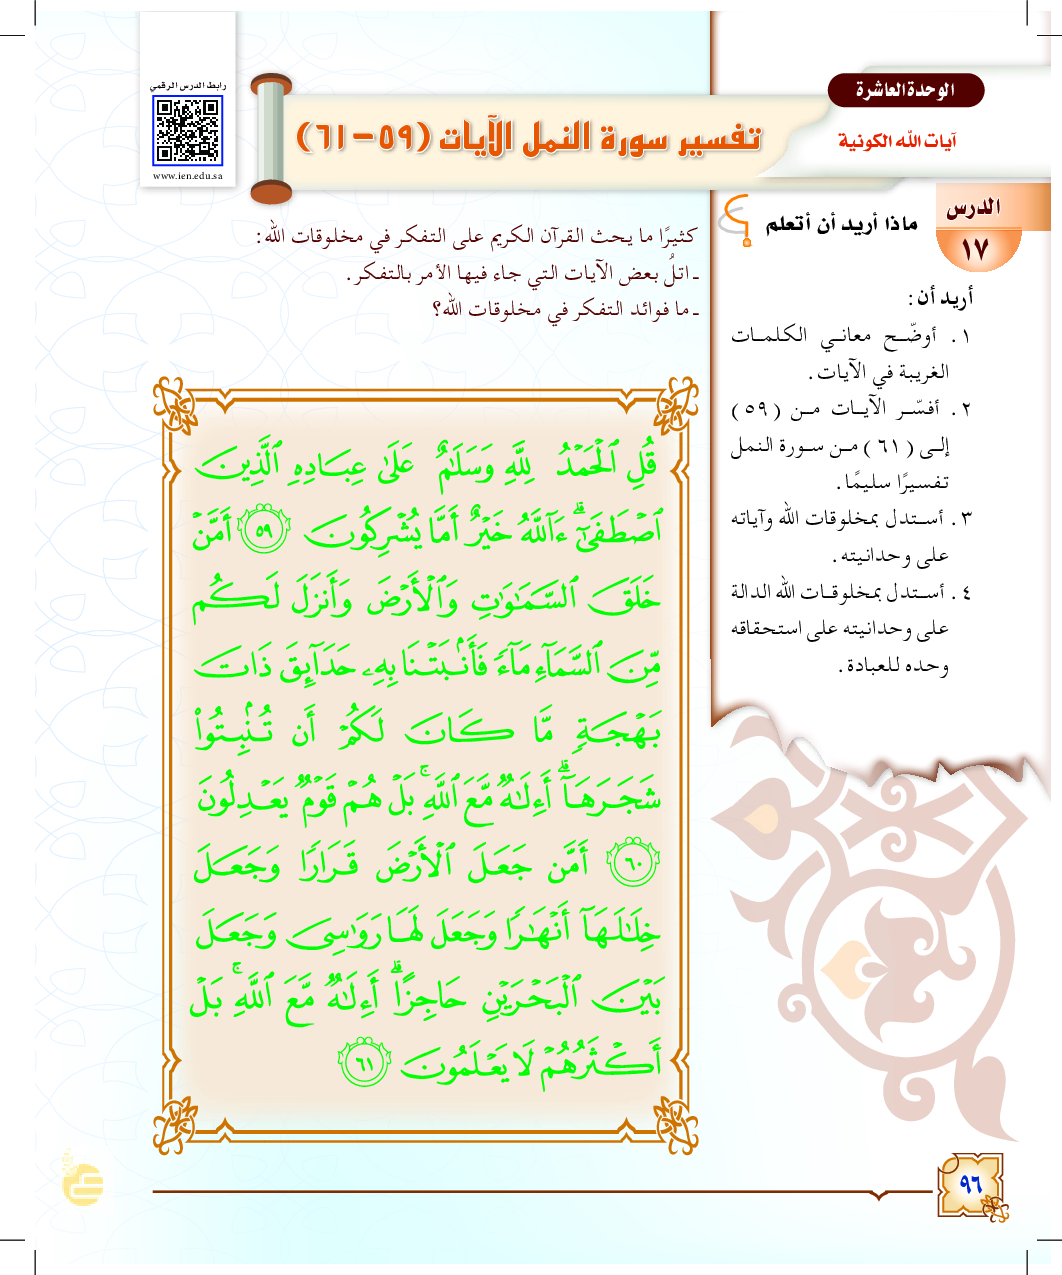 الوحدة العاشرة
آيات الله الكونية
رابط الدرس الرقمي
www.ien.edu.sa
تفسير سورة النمل الآيات (٥٩-٦١)
الدرس
١٧
ماذا أريد أن أتعلم
أريد أن:
١. أوضّح معاني الكلمات
الغريبة في الآيات.
٢. أفسّر الآيات من (٥٩)
إلى (٦١) من سورة النمل
تفسيرًا سليمًا.
٣. أستدل بمخلوقات الله وآياته
على وحدانيته.
٤. أستدل بمخلوقات الله الدالة
على وحدانيته على استحقاقه
وحده للعبادة.
كثيرًا ما يحث القرآن الكريم على التفكر في مخلوقات الله:
ـ اتلُ بعض الآيات التي جاء فيها الأمر بالتفكر.
ـ ما فوائد التفكر في مخلوقات الله؟
قُلِ ٱلْحَمْدُ لِلَّهِ وَسَلَـٰمٌ عَلَىٰ عِبَادِهِ ٱلَّذِينَ
ٱصْطَفَىٰٓ ۗ ءَآللَّهُ خَيْرٌ أَمَّا يُشْرِكُونَ ٥٩ أَمَّنْ
خَلَقَ ٱلسَّمَـٰوَٰتِ وَٱلْأَرْضَ وَأَنزَلَ لَكُم
مِّنَ ٱلسَّمَآءِ مَآءً فَأَنۢبَتْنَا بِهِۦ حَدَآئِقَ ذَاتَ
بَهْجَةٍ مَّا كَانَ لَكُمْ أَن تُنۢبِتُوا۟
شَجَرَهَآ ۗ أَءِلَـٰهٌ مَّعَ ٱللَّهِ ۚ بَلْ هُمْ قَوْمٌ يَعْدِلُونَ
٦٠ أَمَّن جَعَلَ ٱلْأَرْضَ قَرَارًا وَجَعَلَ
خِلَـٰلَهَآ أَنْهَـٰرًا وَجَعَلَ لَهَا رَوَٰسِىَ وَجَعَلَ
بَيْنَ ٱلْبَحْرَيْنِ حَاجِزًا ۗ أَءِلَـٰهٌ مَّعَ ٱللَّهِ ۚ بَلْ
أَكْثَرُهُمْ لَا يَعْلَمُونَ ٦١
٩٦